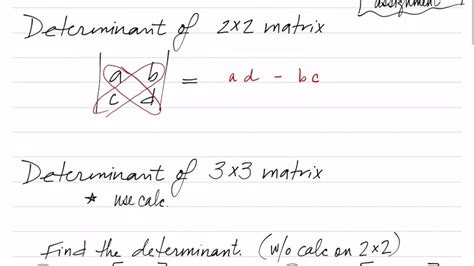 assignment
Determinant of 2x2 matrix
| a b | = ad - bc
| c d |
Determinant of 3x3 matrix
* use calc.
Find the determinant. (w/o calc on 2x2)